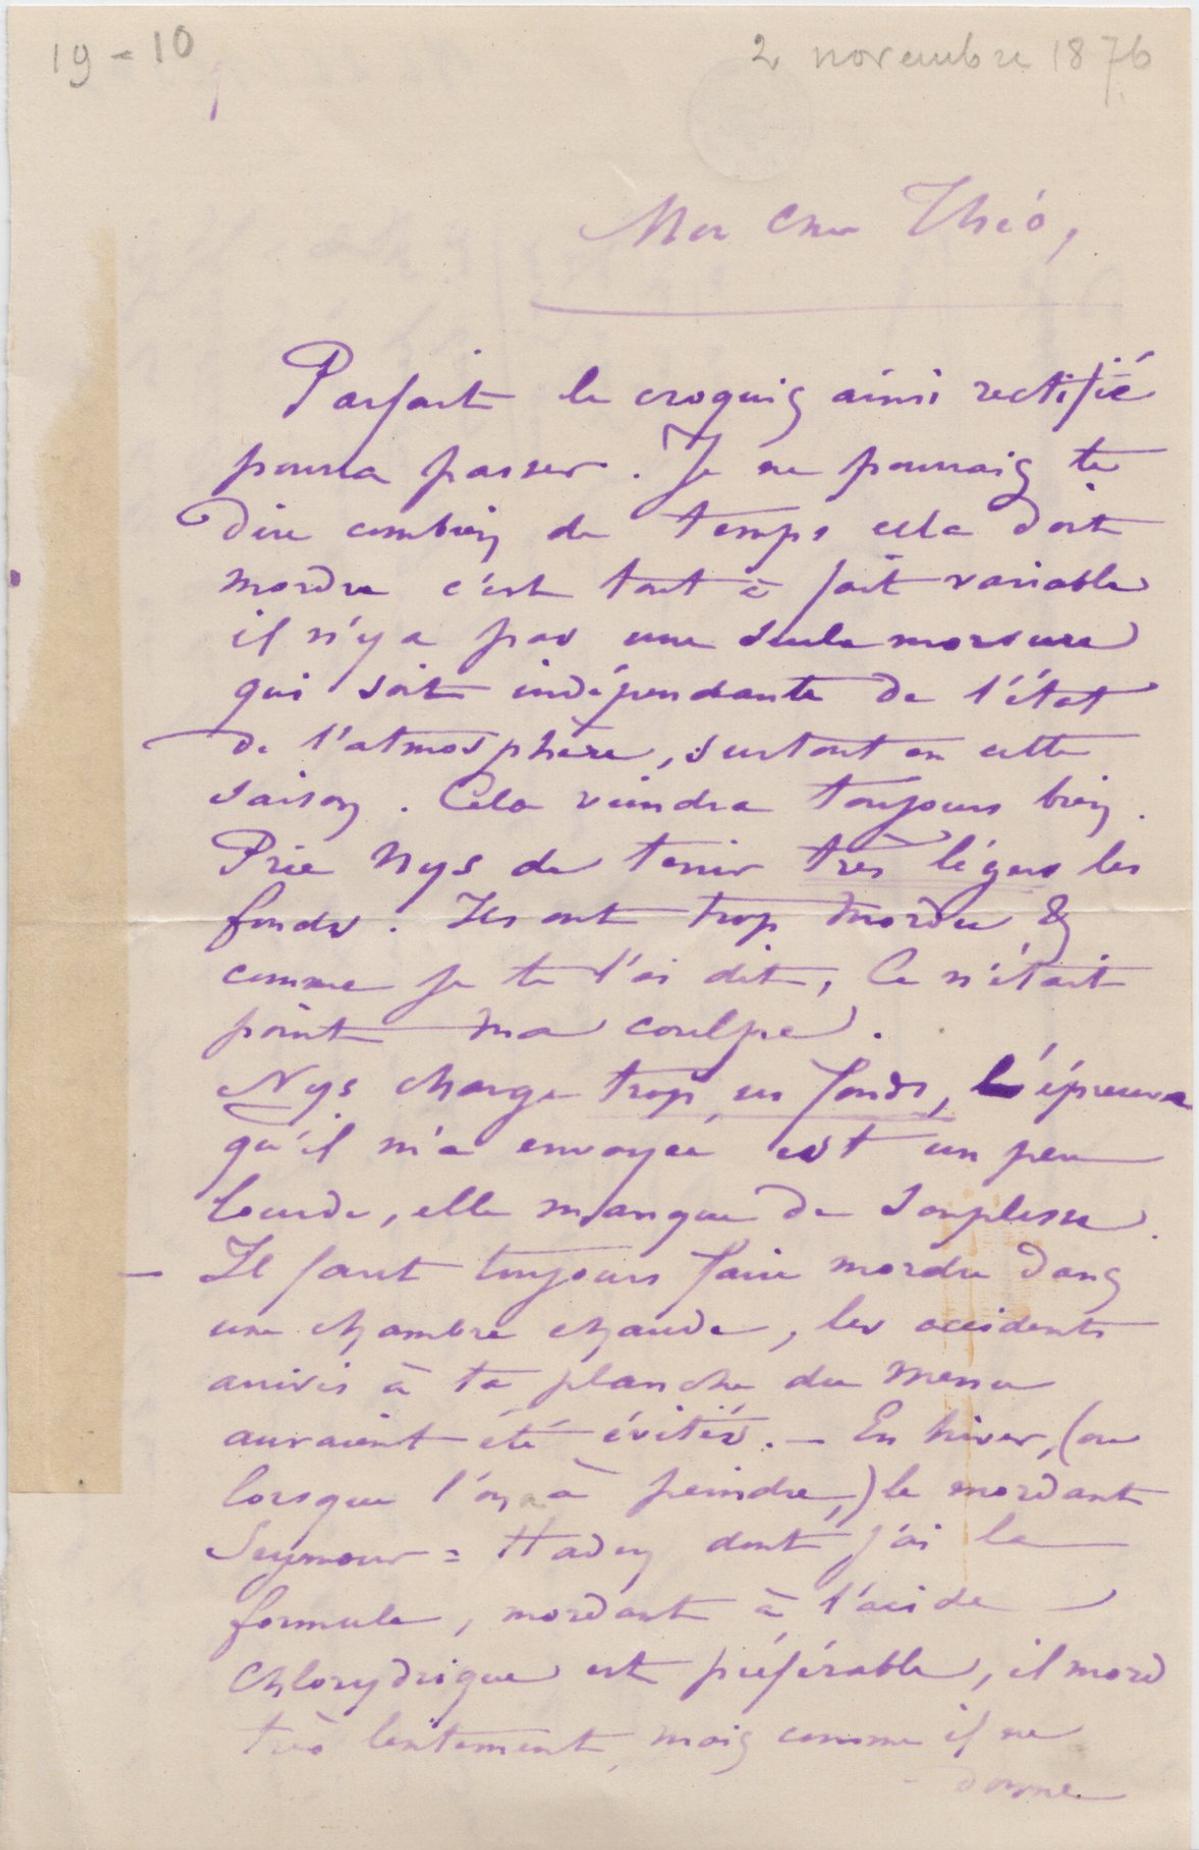 19-10
2 novembre 1876
Mon Cher Théo,
Parfait le croquis ainsi rectifié
pourra passer. Je ne pourrais te
dire combien de temps cela doit
mordre c'est tout à fait variable
il n'y a pas une seule morsure
qui soit indépendante de l'état
de l'atmosphère, surtout en cette
saison. Cela viendra toujours bien.
Prie Nys de tenir très légers les
fonds. Ils ont trop mordu &
comme je te l'ai dit, Ce n'était
point ma coulpe.
Nys charge trop ses fonds, L'épreuve
qu'il m'a envoyée est un peu
lourde, elle manque de souplesse.
— Il faut toujours faire mordre dans
une chambre chaude, les accidents
arrivés à ta planche du menu
auraient été évités. — En hiver, (ou
lorsque l'on a à peindre,) le mordant
Seymour = Haden dont j'ai la
formule, mordant à l'acide
Chlorydrique est préférable, il mord
très lentement, mais comme il ne
donne